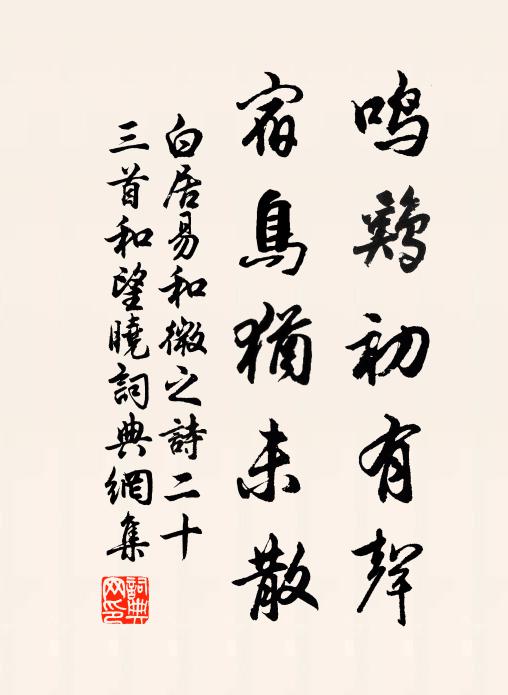 鳴鷄初有聲
宿鳥猶未散
白居易和微之詩二十
三首和望曉詞典網集
詞典
网印